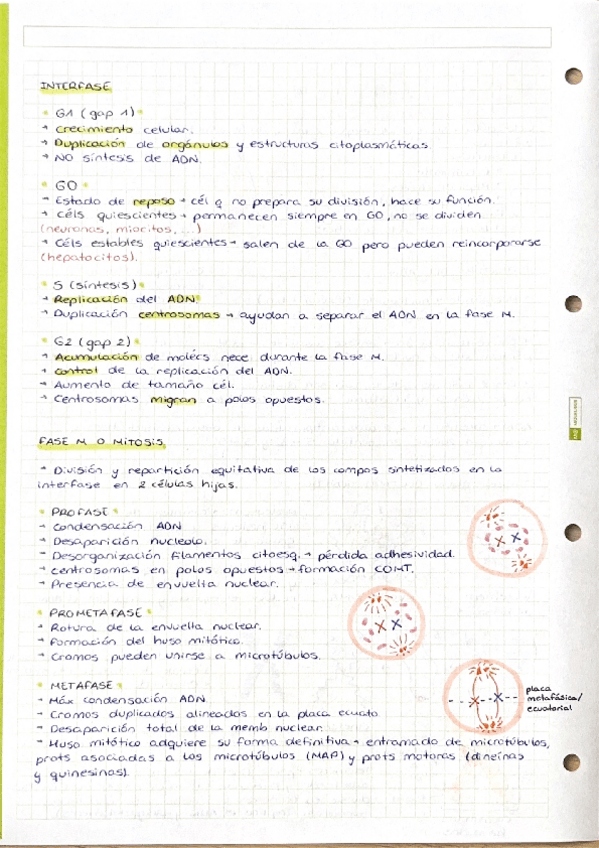 INTERFASE
G1 (gap 1)
→ Crecimiento celular.
→ Duplicación de orgánulos y estructuras citoplasmáticas.
→ NO síntesis de ADN.
G0
→ Estado de reposo → cél q no prepara su división, hace su función.
→ Céls quiescientes → permanecen siempre en G0, no se dividen
(neuronas, miocitos, ...)
→ Céls estables quiescientes → salen de la G0 pero pueden reincorporarse
(hepatocitos).
S (síntesis)
→ Replicación del ADN
→ Duplicación centrosomas → ayudan a separar el ADN en la fase M.
G2 (gap 2)
→ Acumulación de molécs nece durante la fase M.
→ Control de la replicación del ADN.
→ Aumento de tamaño cél.
→ Centrosomas migran a polos opuestos.
FASE M O MITOSIS
→ División y repartición equitativa de los compos sintetizados en la
interfase en 2 células hijas.
PROFASE
→ Condensación ADN
→ Desaparición nucleolo.
→ Desorganización filamentos citoesq. → pérdida adhesividad.
→ Centrosomas en polos opuestos → formación COMT.
→ Presencia de envuelta nuclear.
PROMETAFASE
→ Rotura de la envuelta nuclear.
→ Formación del huso mitótico.
→ Cromos pueden unirse a microtúbulos.
METAFASE
→ Máx condensación ADN
→ Cromos duplicados alineados en la placa ecuato
→ Desaparición total de la memb nuclear.
→ Huso mitótico adquiere su forma definitiva → entramado de microtúbulos,
prots asociadas a los microtúbulos (MAP) y prots motoras (dineínas
y quinesinas).
placa
metafásica/
ecuatorial